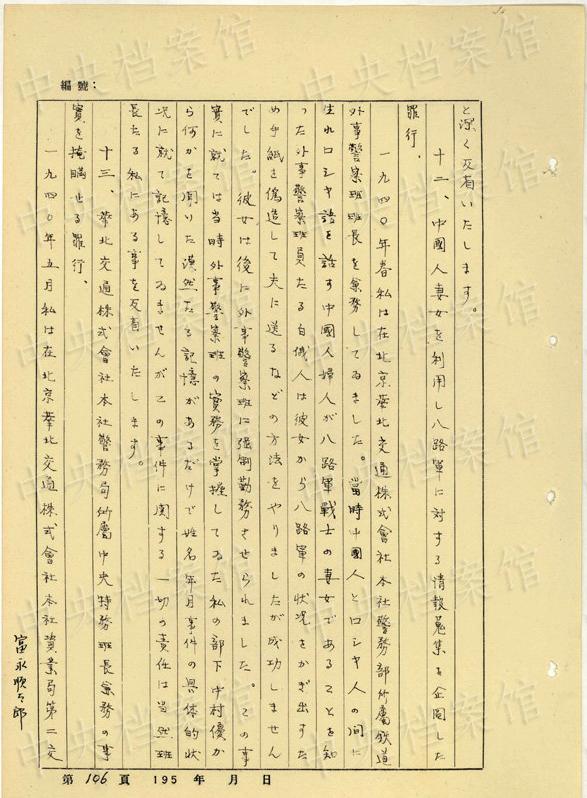 編號：
と深く反省いたします。
十二、中國人妻女を利用し八路軍に対する情報蒐集を企図した
罪行、
一九四〇年春私は在北京華北交通株式會社本社警務部所屬鉄道
外事警察班班長を兼務してゐました。當時中國人とロシヤ人の間に
生れロシヤ語を話す中國人婦人が八路軍戦士の妻女であることを知
った外事警察班員たる白俄人は彼女から八路軍の状況をかぎ出すた
め手紙を偽造して夫に送るなどの方法をやりましたが成功しません
でした。彼女は後に外事警察班に强制勤務させられました。この事
實に就ては当時外事警察班の實務を掌握してゐた私の部下中村優か
ら何かを聞いた漠然たる記憶があるだけで姓名年月事件の具体的状
況に就て記憶してゐませんがこの事件に関する一切の責任は当然班
長たる私にある事を反省いたします。
十三、華北交通株式會社本社警務局所屬中央特務班長兼務の事
實を掩瞞せる罪行、
一九四〇年五月私は在北京華北交通株式會社本社資業局第二交
富永順太郎
第106頁 195 年 月 日
中央档案馆
中央档案馆
中央档案馆
中央档案馆